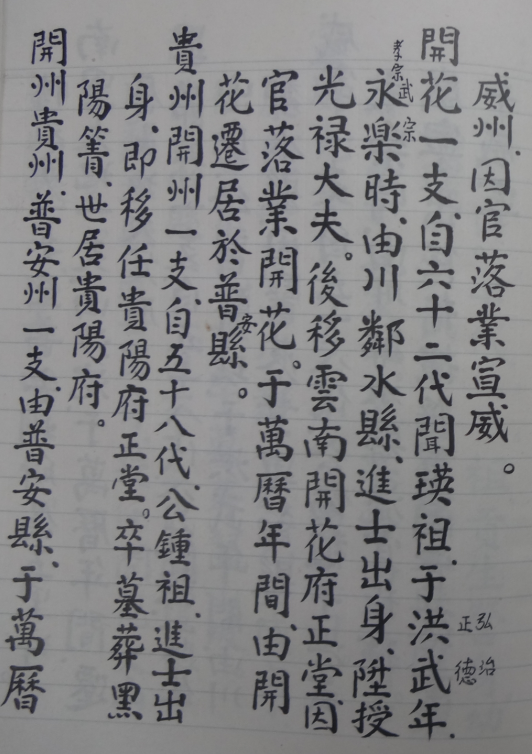 威州、因官落業宣威。
開花一支、自六十二代聞瑛祖、于洪武年、
弘治
正德
永楽時、由川鄰水縣、進士出身、陞授
孝宗武宗
光禄大夫。後移雲南開花府正堂、因
官落業開花。于萬曆年間、由開
花遷居於普安縣。
貴州開州一支、自五十八代、公鍾祖、進士出
身、即移任貴陽府正堂。卒墓葬黑
陽箐、世居貴陽府。
開州貴州、普安州一支、由普安縣、于萬曆